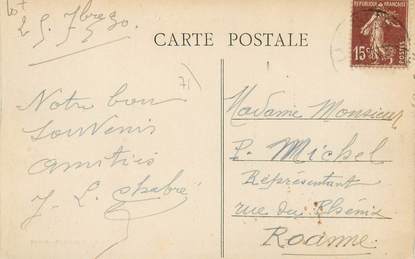 le 5. 7bre 30.
CARTE POSTALE
REPUBLIQUE FRANÇAISE
15c
POSTES
71
Notre bon
souvenir
amitiés
J. L. Chabré
Madame Monsieur
P. Michel
Réprésentant
rue du Phénix
Roanne